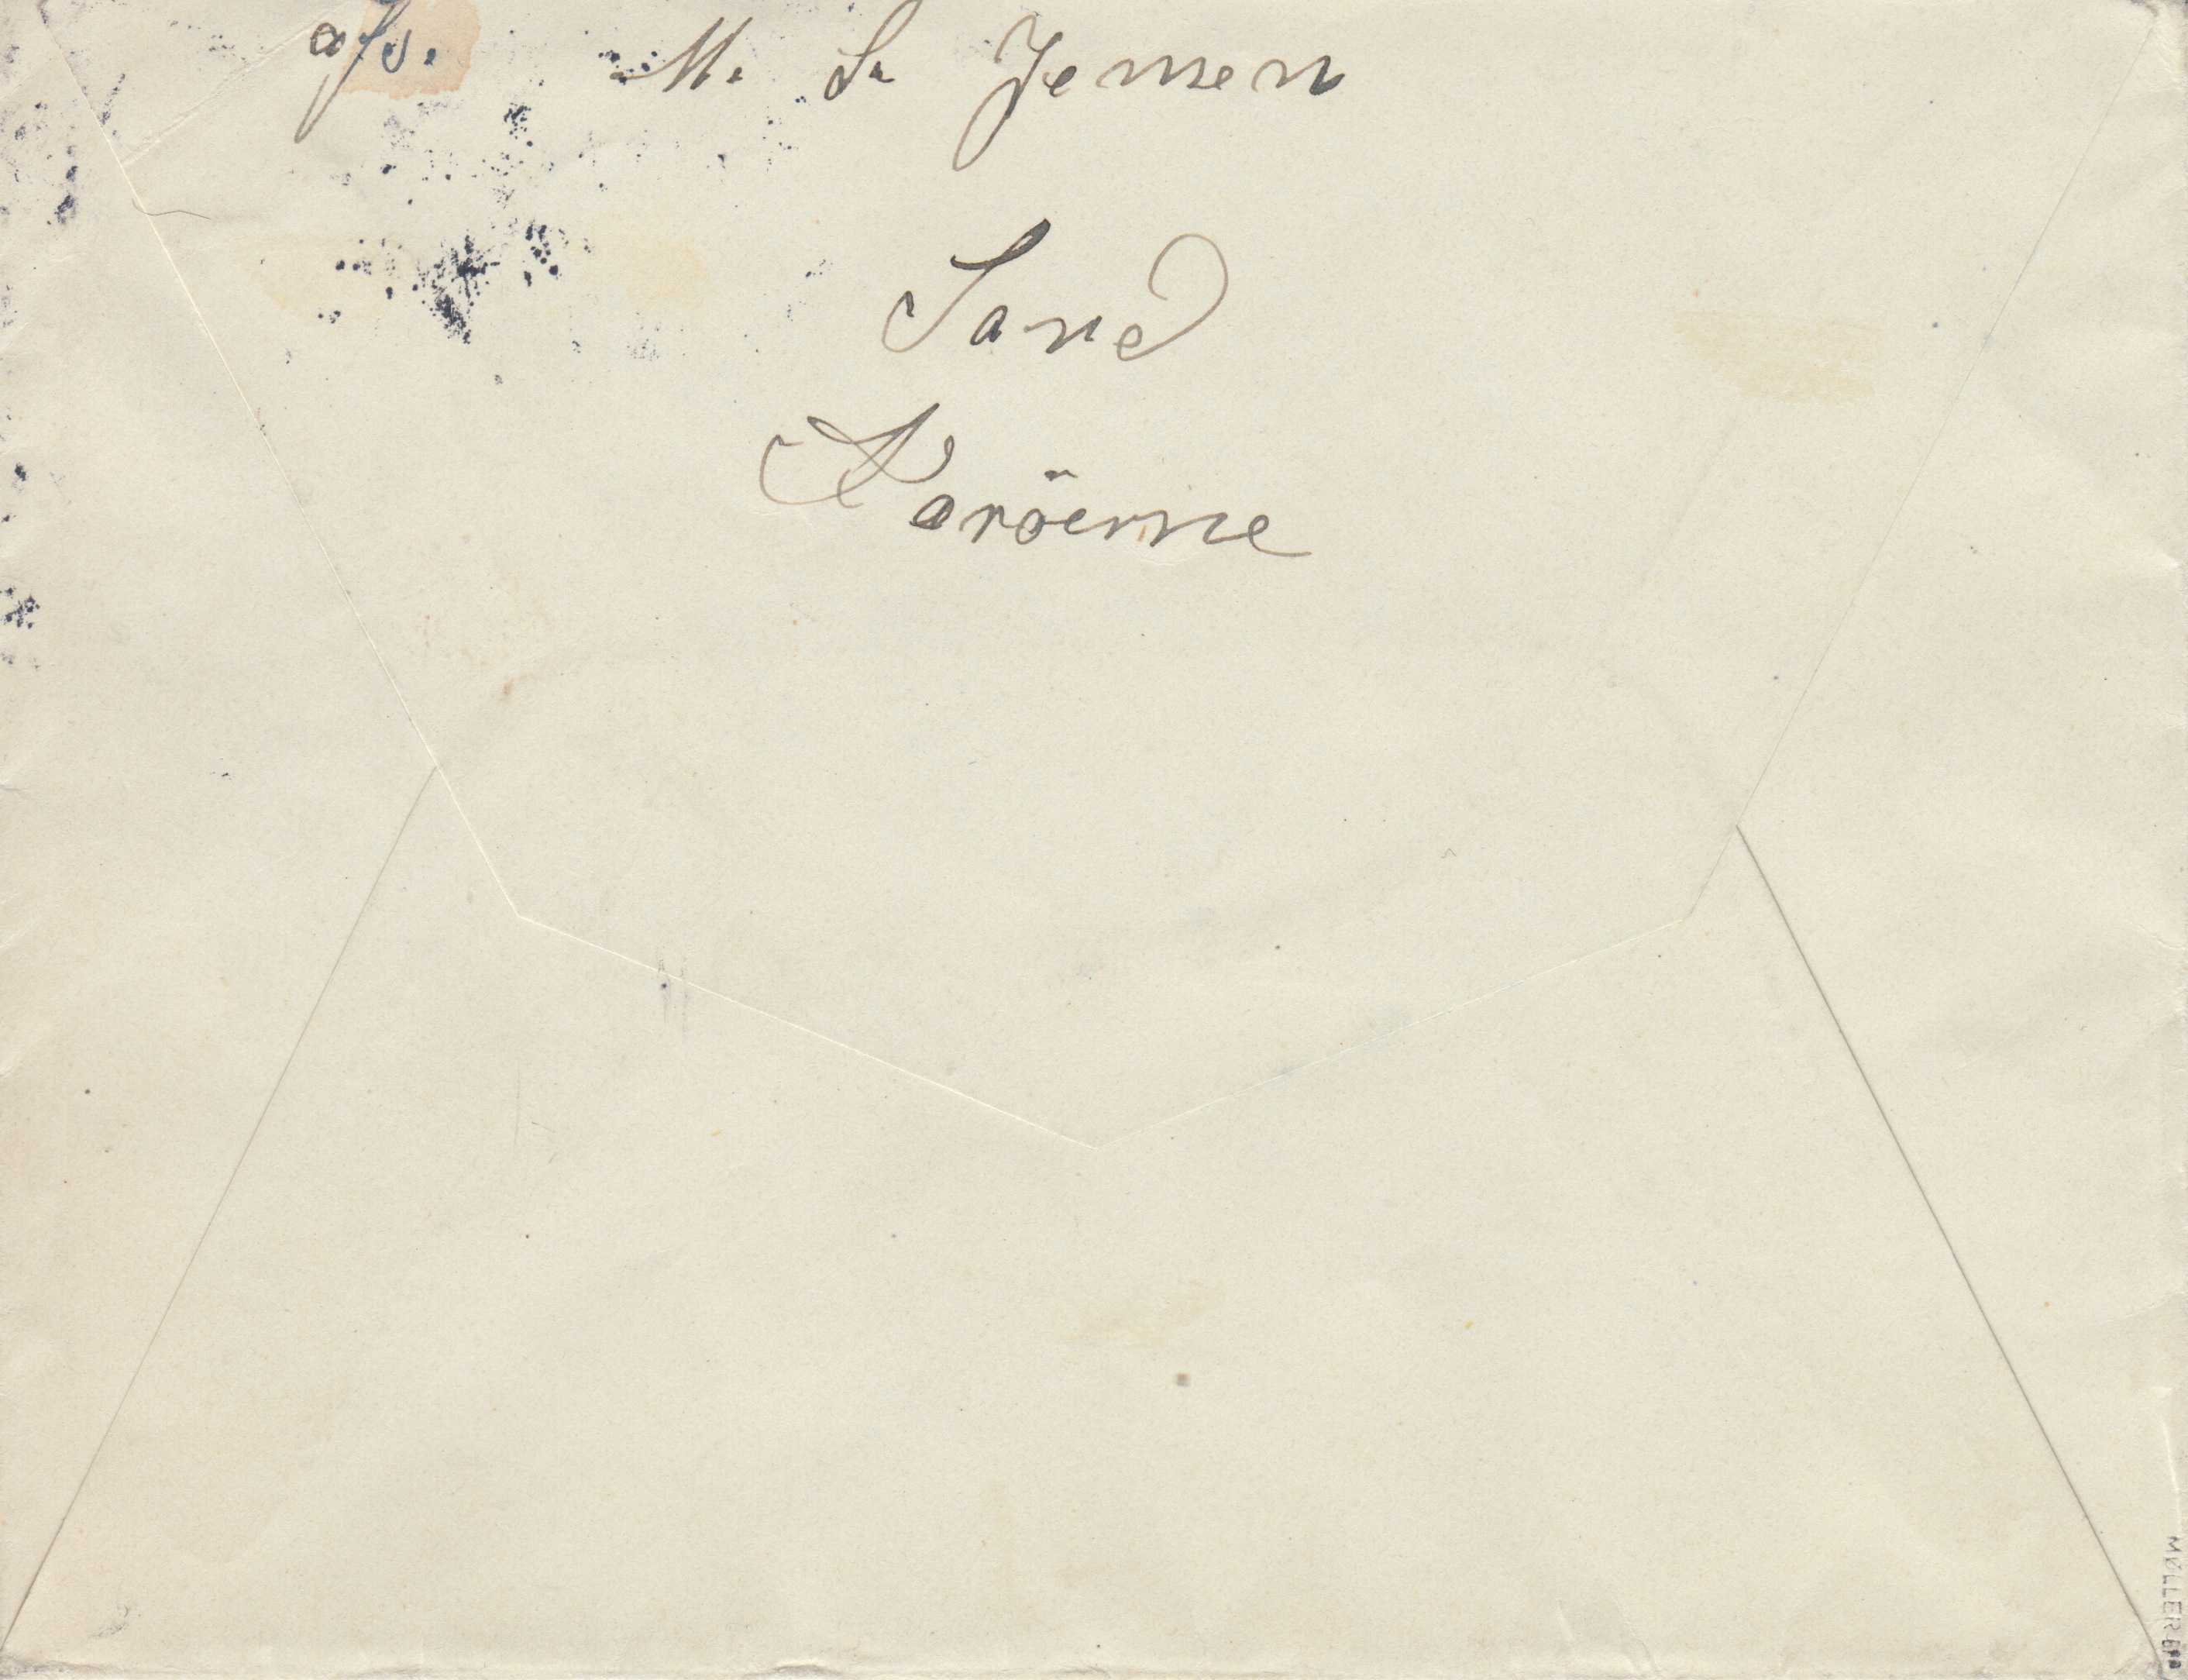 afs. M. S. Jensen
Sand
Faröerne
MØLLER